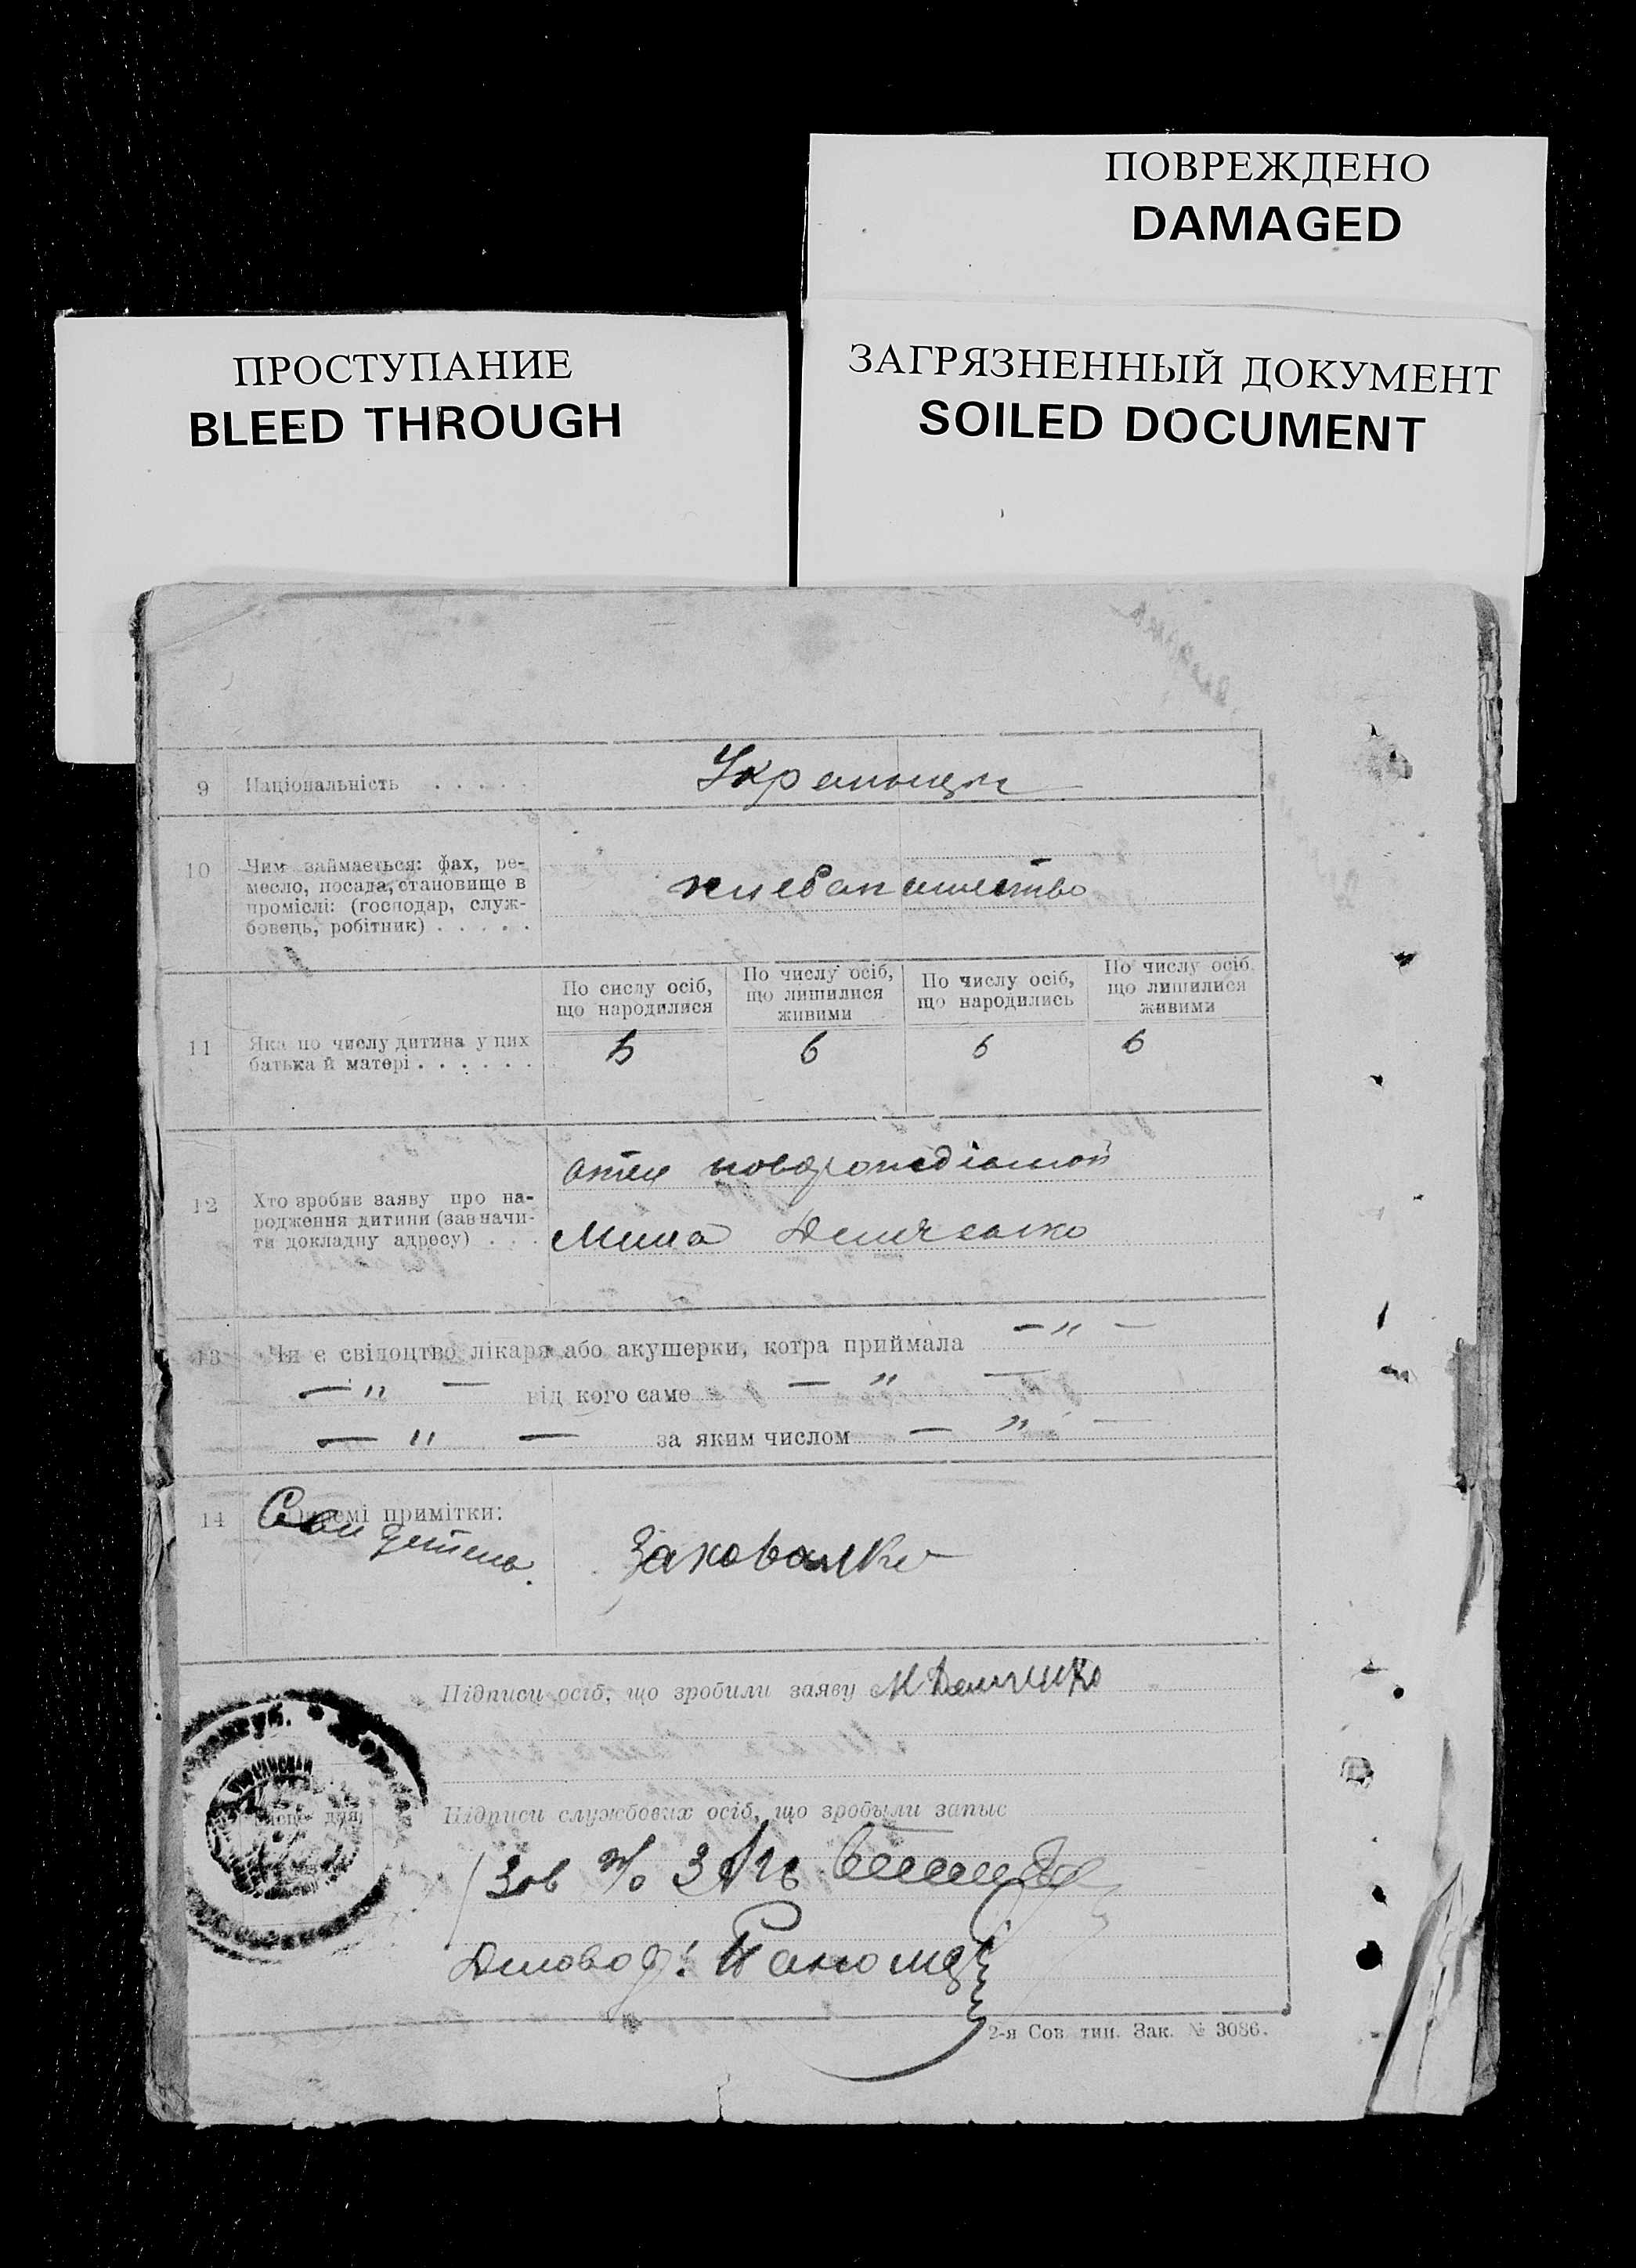 ПОВРЕЖДЕНО
DAMAGED
ПРОСТУПАНИЕ
BLEED THROUGH
ЗАГРЯЗНЕННЫЙ ДОКУМЕНТ
SOILED DOCUMENT
9 Національність . . . . .
10 Чим займається: фах, ре-
месло, посада, становище в
проміслі: (господар, служ-
бовець, робітник) . . . . .
По сислу осіб,
що народилися
По числу осіб,
що лишилися
живими
По числу осіб,
що народились
По числу осіб
що лишилися
живими
11 Яка по числу дитина у цих
батька й матері . . . . . .
6 6 6
12 Хто зробив заяву про на-
родження дитини (зазначи-
ти докладну адресу) . . .
Демченко
13 Чи є свідоцтво лікаря або акушерки, котра приймала — „ —
— „ — від кого саме — „ —
— „ — за яким числом — „ —
14 примітки:
Свидетель.
Підписи осіб, що зробили заяву М Демченко
Підписи службових осіб, що зробыли запыс
Зав п/о ЗАГС
Деловод:
2-я Сов. тип. Зак. № 3086.